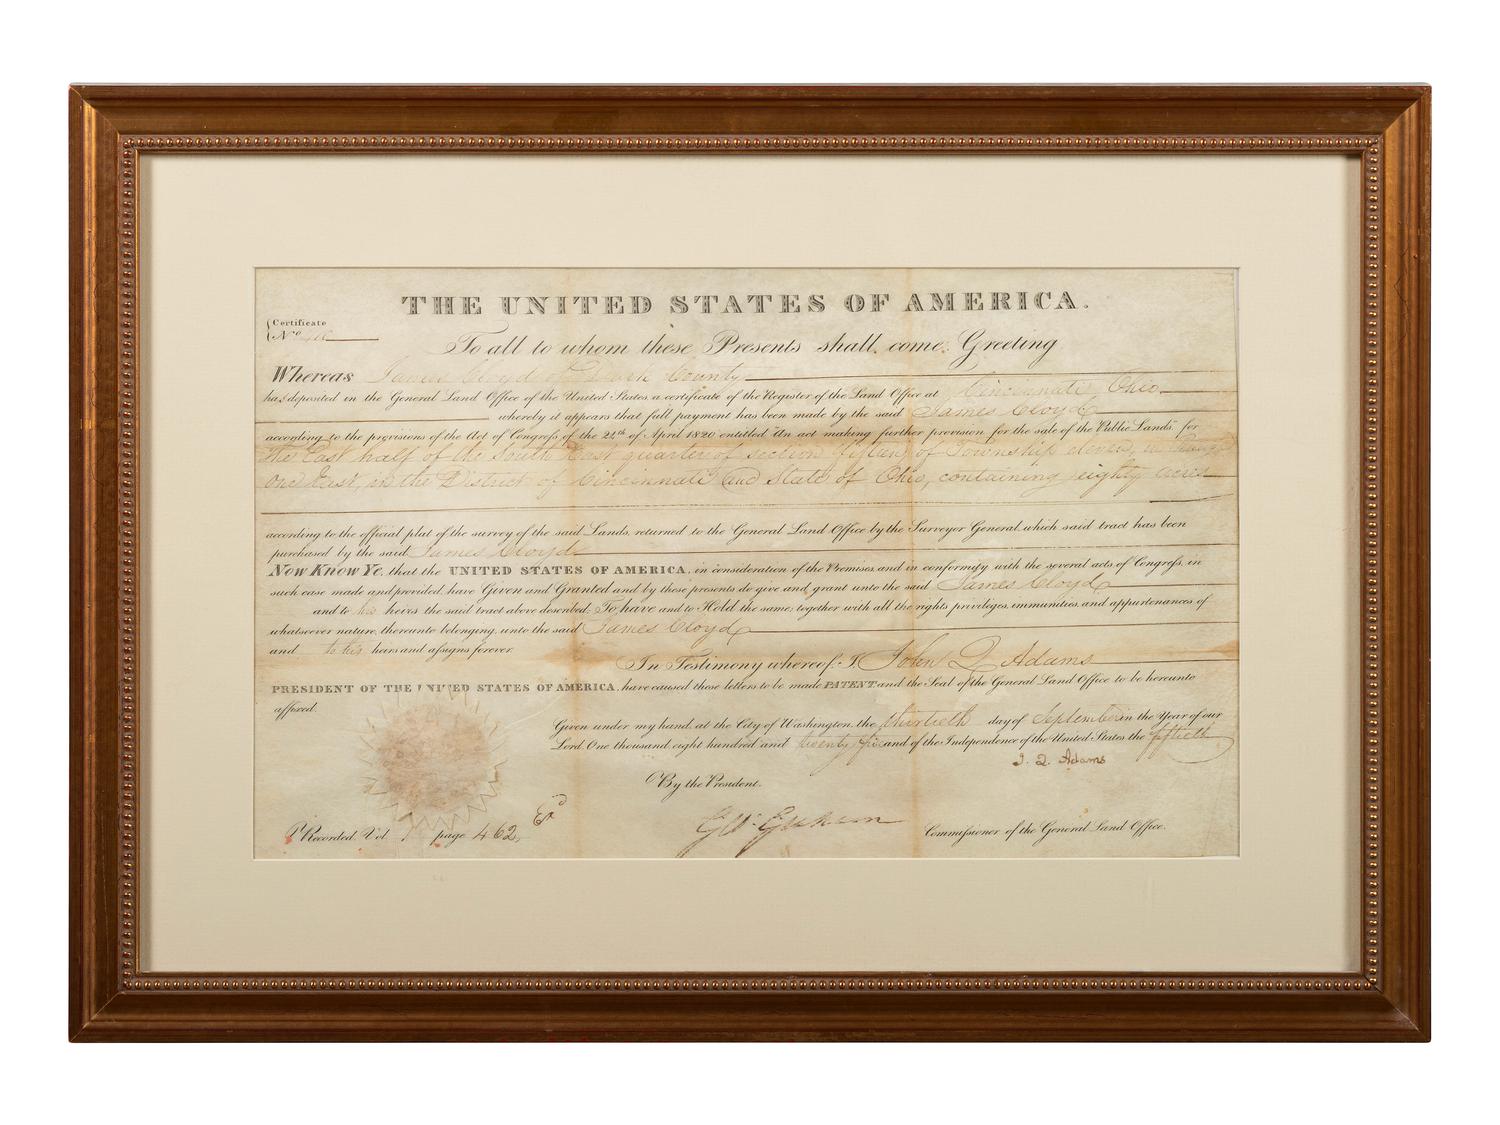 THE UNITED STATES OF AMERICA.
Certificate
No.
To all to whom these Presents shall come, Greeting
Whereas James Cloyd of Dark County
has deposited in the General Land Office of the United States a certificate of the Register of the Land Office at Cincinnati Ohio
whereby it appears that full payment has been made by the said James Cloyd
according to the provisions of the Act of Congress of the 24th of April 1820 entitled "An act making further provision for the sale of the Public Lands," for
the East half of the South East quarter of section fifteen of Township eleven, in Range
One East, in the District of Cincinnati and State of Ohio, containing eighty acres
according to the official plat of the survey of the said Lands, returned to the General Land Office by the Surveyor General, which said tract has been
purchased by the said James Cloyd
Now Know Ye, that the UNITED STATES OF AMERICA, in consideration of the Premises, and in conformity with the several acts of Congress, in
such case made and provided, have Given and Granted and by these presents do give and grant unto the said James Cloyd
and to his heirs the said tract above described; To have and to Hold the same, together with all the rights, privileges, immunities, and appurtenances of
whatsoever nature, thereunto belonging, unto the said James Cloyd
and to his heirs and assigns forever.
In Testimony whereof, I John Q Adams
PRESIDENT OF THE UNITED STATES OF AMERICA, have caused these letters to be made PATENT and the Seal of the General Land Office to be hereunto
affixed.
Given under my hand, at the City of Washington, the thirtieth day of September in the Year of our
Lord One thousand eight hundred and twenty five and of the Independence of the United States the fiftieth
J. Q. Adams
By the President.
Geo. Graham Commissioner of the General Land Office.
Recorded, Vol. 1 page 462,